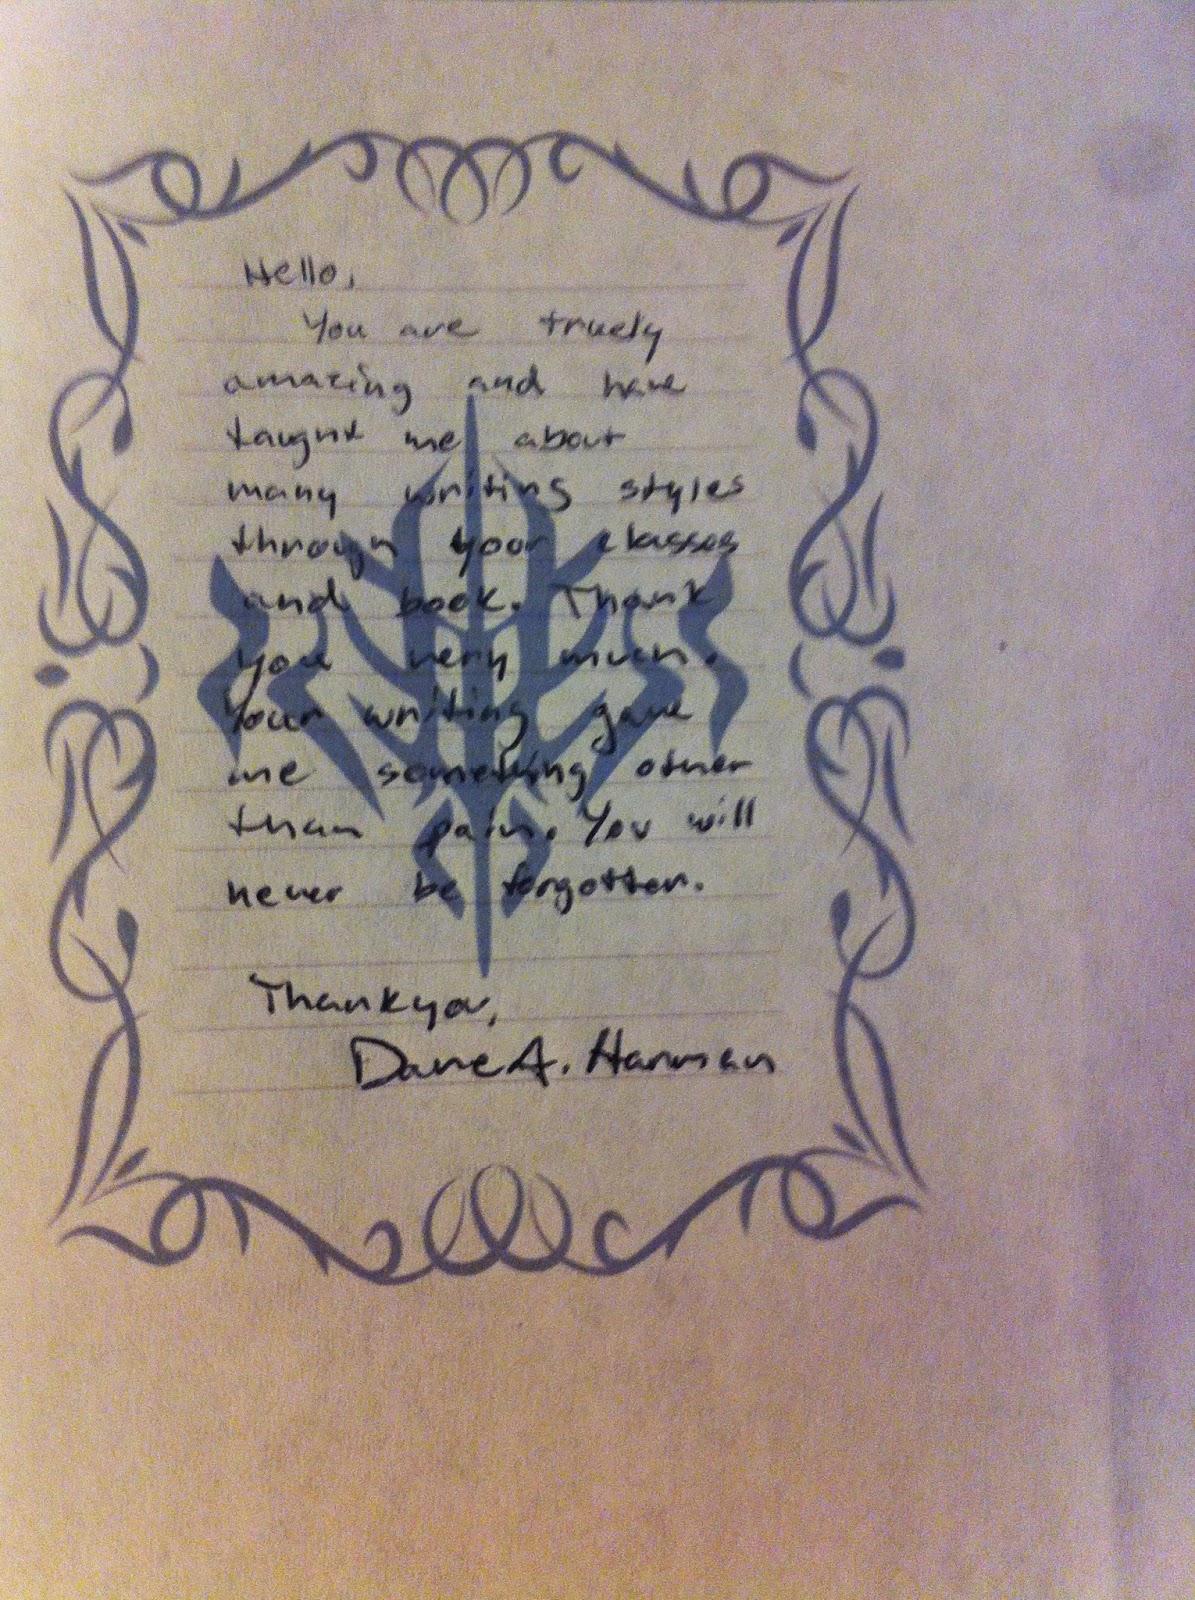 Hello,
You are truely
amazing and have
taught me about
many writing styles
through your classes
and book. Thank
you very much.
Your writing gave
me something other
than pain. You will
never be forgotten.
Thankyou,
Dave A. Harman